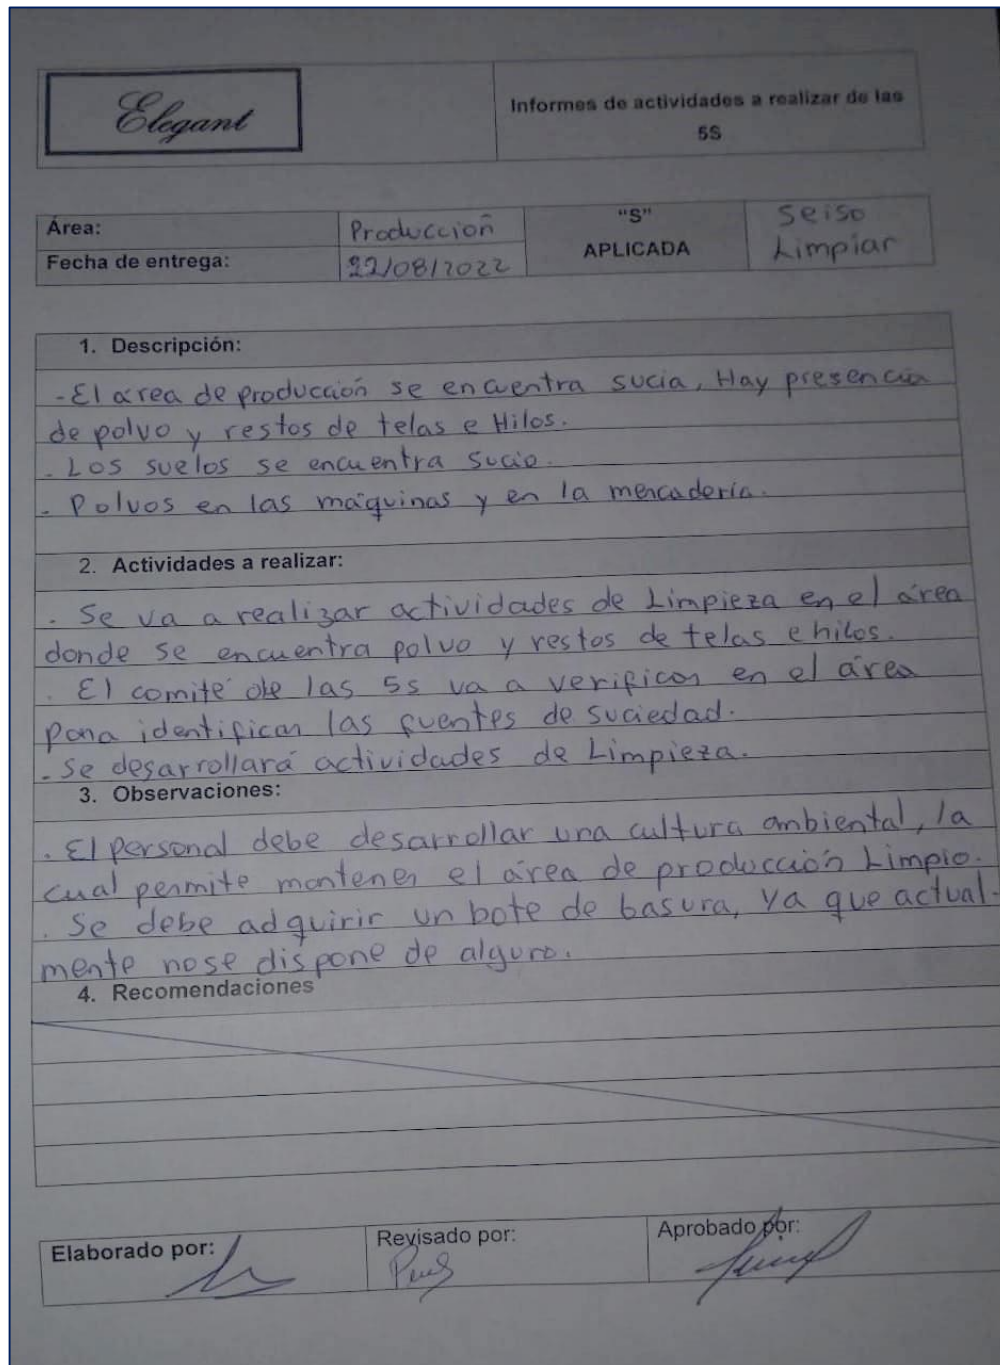 Elegant
Informes de actividades a realizar de las
5S
Área:
Producción
"S"
APLICADA
Seiso
Limpiar
Fecha de entrega:
22/08/2022
1. Descripción:
- El area de producción se encuentra sucia, Hay presencia
de polvo y restos de telas e Hilos.
. Los suelos se encuentra sucio.
- Polvos en las maquinas y en la mercaderia.
2. Actividades a realizar:
. Se va a realizar actividades de Limpieza en el área
donde se encuentra polvo y restos de telas e hilos.
. El comité de las 5s va a verificar en el área
para identificar las fuentes de suciedad.
- Se desarrollará actividades de Limpieza.
3. Observaciones:
. El personal debe desarrollar una cultura ambiental, la
cual permite mantener el área de producción Limpio.
. Se debe adquirir un bote de basura, ya que actual-
mente nose dispone de alguno.
4. Recomendaciones
Elaborado por:
Revisado por:
Aprobado por: